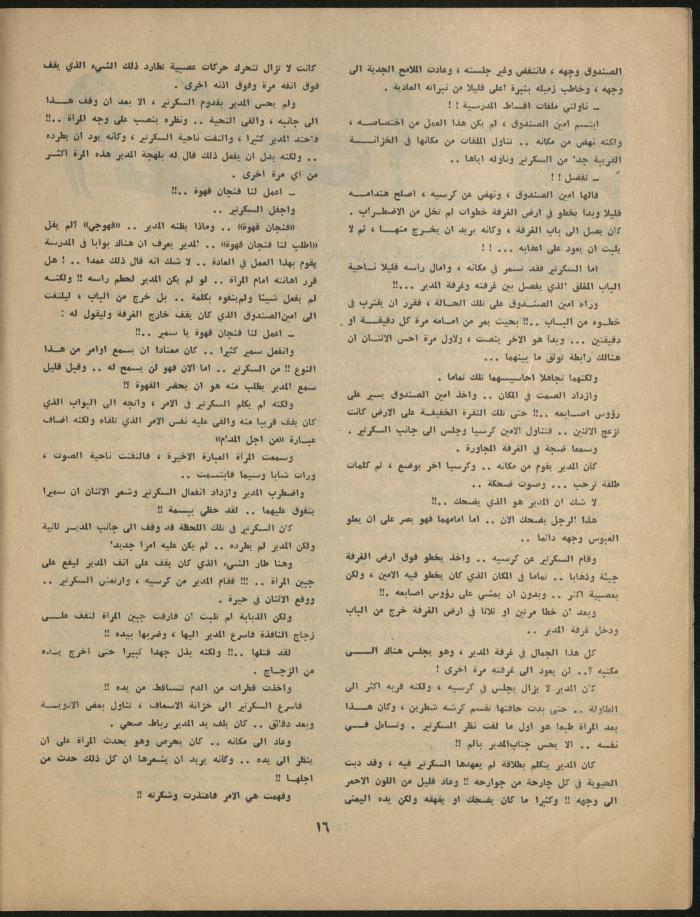 الصندوق وجهه ، فانتفض وغير جلسته ، وعادت الملامح الجدية الى
وجهه ، وخاطب زميله بنبرة اعلى قليلا من نبراته العادية .
ــ ناولني ملفات اقساط المدرسية ! !
ابتسم امين الصندوق ، لم يكن هذا العمل من اختصاصه ،
ولكنه نهض من مكانه .. تناول الملفات من مكانها في الخزانة
القريبة جدا من السكرتير وناوله اياها ..
ــ تفضل ! !
قالها امين الصندوق ، ونهض عن كرسيه ، اصلح هندامه
قليلا وبدأ يخطو في ارض الغرفة خطوات لم تخل من الاضطراب .
كان يصل الى باب الغرفة ، وكانه يريد ان يخرج منها ، ثم لا
يلبث ان يعود على اعقابه ... ! !
اما السكرتير فقد تسمر في مكانه ، وامال راسه قليلا ناحية
الباب المغلق الذي يفصل بين غرفته وغرفة المدير ...!!
وراه امين الصندوق على تلك الحالة ، فقرر ان يقترب في
خطوه من الباب ..!! بحيث يمر من امامه مرة كل دقيقة او
دقيقتين ... وبدأ هو الاخر ينصت ، ولاول مرة احس الاثنان ان
هنالك رابطة توثق ما بينهما ...
ولكنهما تجاهلا احاسيسهما تلك تماما .
وازداد الصمت في المكان .. واخذ امين الصندوق يسير على
رؤوس اصابعه ..!! حتى تلك النقرة الخفيفة على الارض كانت
تزعج الاثنين .. فتناول الامين كرسيا وجلس الى جانب السكرتير .
وسمعا ضجة في الغرفة المجاورة .
كان المدير يقوم من مكانه .. وكرسيا اخر يوضع ، ثم كلمات
طلقة ترحب ... وصوت ضحكة ..
لا شك ان المدير هو الذي يضحك ..!!
هذا الرجل يضحك الان .. اما امامهما فهو يصر على ان يعلو
العبوس وجهه دائما ..
وقام السكرتير عن كرسيه .. واخذ يخطو فوق ارض الغرفة
جيئة وذهابا .. تماما في المكان الذي كان يخطو فيه الامين ، ولكن
بعصبية اكثر .. وبدون ان يمشي على رؤوس اصابعه .!!
وبعد ان خطا مرتين او ثلاثا في ارض الغرفة خرج من الباب
ودخل غرفة المدير ..
كل هذا الجمال في غرفة المدير ، وهو يجلس هناك الــى
مكتبه ؟.. لن يعود الى غرفته مرة اخرى !
كان المدير لا يزال يجلس في كرسيه ، ولكنه قربه اكثر الى
الطاولة .. حتى بدت حافتها تقسم كرشه شطرين ، وكان هــذا
بعد المرأة طبعا هو اول ما لفت نظر السكرتير . وتساءل فــي
نفسه .. الا يحس جناب المدير بالم ؟!
كان المدير يتكلم بطلاقة لم يعهدها السكرتير فيه ، وقد دبت
الحيوية في كل جارحة من جوارحه !! وعاد قليل من اللون الاحمر
الى وجهه !! وكثيرا ما كان يضحك او يقهقه ولكن يده اليمنى
كانت لا تزال تتحرك حركات عصبية تطارد ذلك الشيء الذي يقف
فوق انفه مرة وفوق اذنه اخرى .
ولم يحس المدير بقدوم السكرتير ، الا بعد ان وقف هــذا
الى جانبه ، والقى التحية .. ونظره ينصب على وجه المرأة ..!!
فاحتد المدير كثيرا ، والتفت ناحية السكرتير ، وكانه يود ان يطرده
.. ولكنه بدل ان يفعل ذلك قال له بلهجة المدير هذه المرة اكثــر
من اي مرة اخرى .
ــ اعمل لنا فنجان قهوة ..!!
واجفل السكرتير ..
«فنجان قهوة» .. وماذا يظنه المدير .. «قهوجي» ؟لم يقل
«اطلب لنا فنجان قهوة» .. المدير يعرف ان هناك بوابا في المدرسة
يقوم بهذا العمل في العادة .. لا شك انه قال ذلك عمدا .. ! هل
قرر اهانته امام المرأة .. لو لم يكن المدير لحطم راسه !! ولكنــه
لم يفعل شيئا ولم يتفوه بكلمة .. بل خرج من الباب ، ليلتفت
الى امين الصندوق الذي كان يقف خارج الغرفة وليقول له :
ــ اعمل لنا فنجان قهوة يا سمير ..!!
وانفعل سمير كثيرا .. كان معتادا ان يسمع اوامر من هــذا
النوع !! من السكرتير .. اما الان فهو لن يسمح له .. وقبل قليل
سمع المدير يطلب منه هو ان يحضر القهوة ؟!
ولكنه لم يكلم السكرتير في الامر ، واتجه الى البواب الذي
كان يقف قريبا منه والقى عليه نفس الامر الذي تلقاه ولكنه اضاف
عبارة «من اجل المدام»
وسمعت المرأة العبارة الاخيرة ، فالتفتت ناحية الصوت ،
ورات شابا وسيما فابتسمت ..
واضطرب المدير وازداد انفعال السكرتير وشعر الاثنان ان سميرا
يتفوق عليهما .. لقد حظي ببسمة !!
كان السكرتير في تلك اللحظة قد وقف الى جانب المديــر ثانية
ولكن المدير لم يطرده .. لم يكن عليه امرا جديدا
وهنا طار الشيء الذي كان يقف على انف المدير ليقع على
جبين المرأة .. !!! فقام المدير من كرسيه ، وارتعش السكرتير ..
ووقع الاثنان في حيرة .
ولكن الذبابة لم تلبث ان فارقت جبين المرأة لتقف علــى
زجاج النافذة فاسرع المدير اليها ، وضربها بيده !!
لقد قتلها ..!! ولكنه بذل جهدا كبيرا حتى اخرج يــده
من الزجاج .
واخذت قطرات من الدم تتساقط من يده !!
فاسرع السكرتير الى خزانة الاسعاف ، تناول بعض الادويــة
وبعد دقائق .. كان يلف يد المدير رباط صحي .
وعاد الى مكانه .. كان يحرص وهو يحدث المرأة على ان
ينظر الى يده .. وكانه يريد ان يشعرها ان كل ذلك حدث من
اجلهــا !!
وفهمت هي الامر فاعتذرت وشكرته !!
١٦